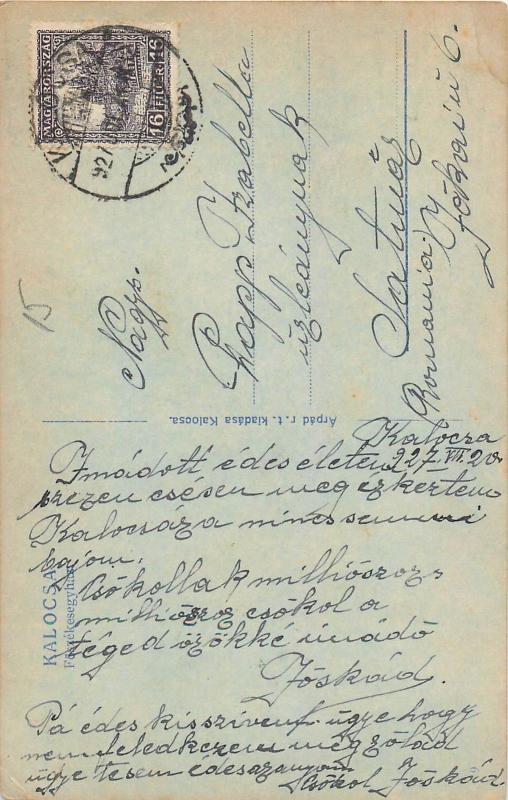 MAGYARORSZÁG
16 FILLÉR 16
927
15
Nagys.
Papp Izabella
úrleánynak
Satmar
Romania
Jókai ú 6.
Árpád r. t. kiadása Kalocsa.
KALOCSA
Főszékesegyház
Kalocsa
927. VII. 20
Imádott édes életem
szerencsésen meg ezkertem
Kalocsáza nincs semmi
bajom.
Csókollak milliószozs
milliószoz csókol a
téged özökké imádó
Jóskád.
Pá édes kis szívem ügye hogy
nem feledkezem meg zólad
ügye tesem édesazanyom
Csókol Jóskád